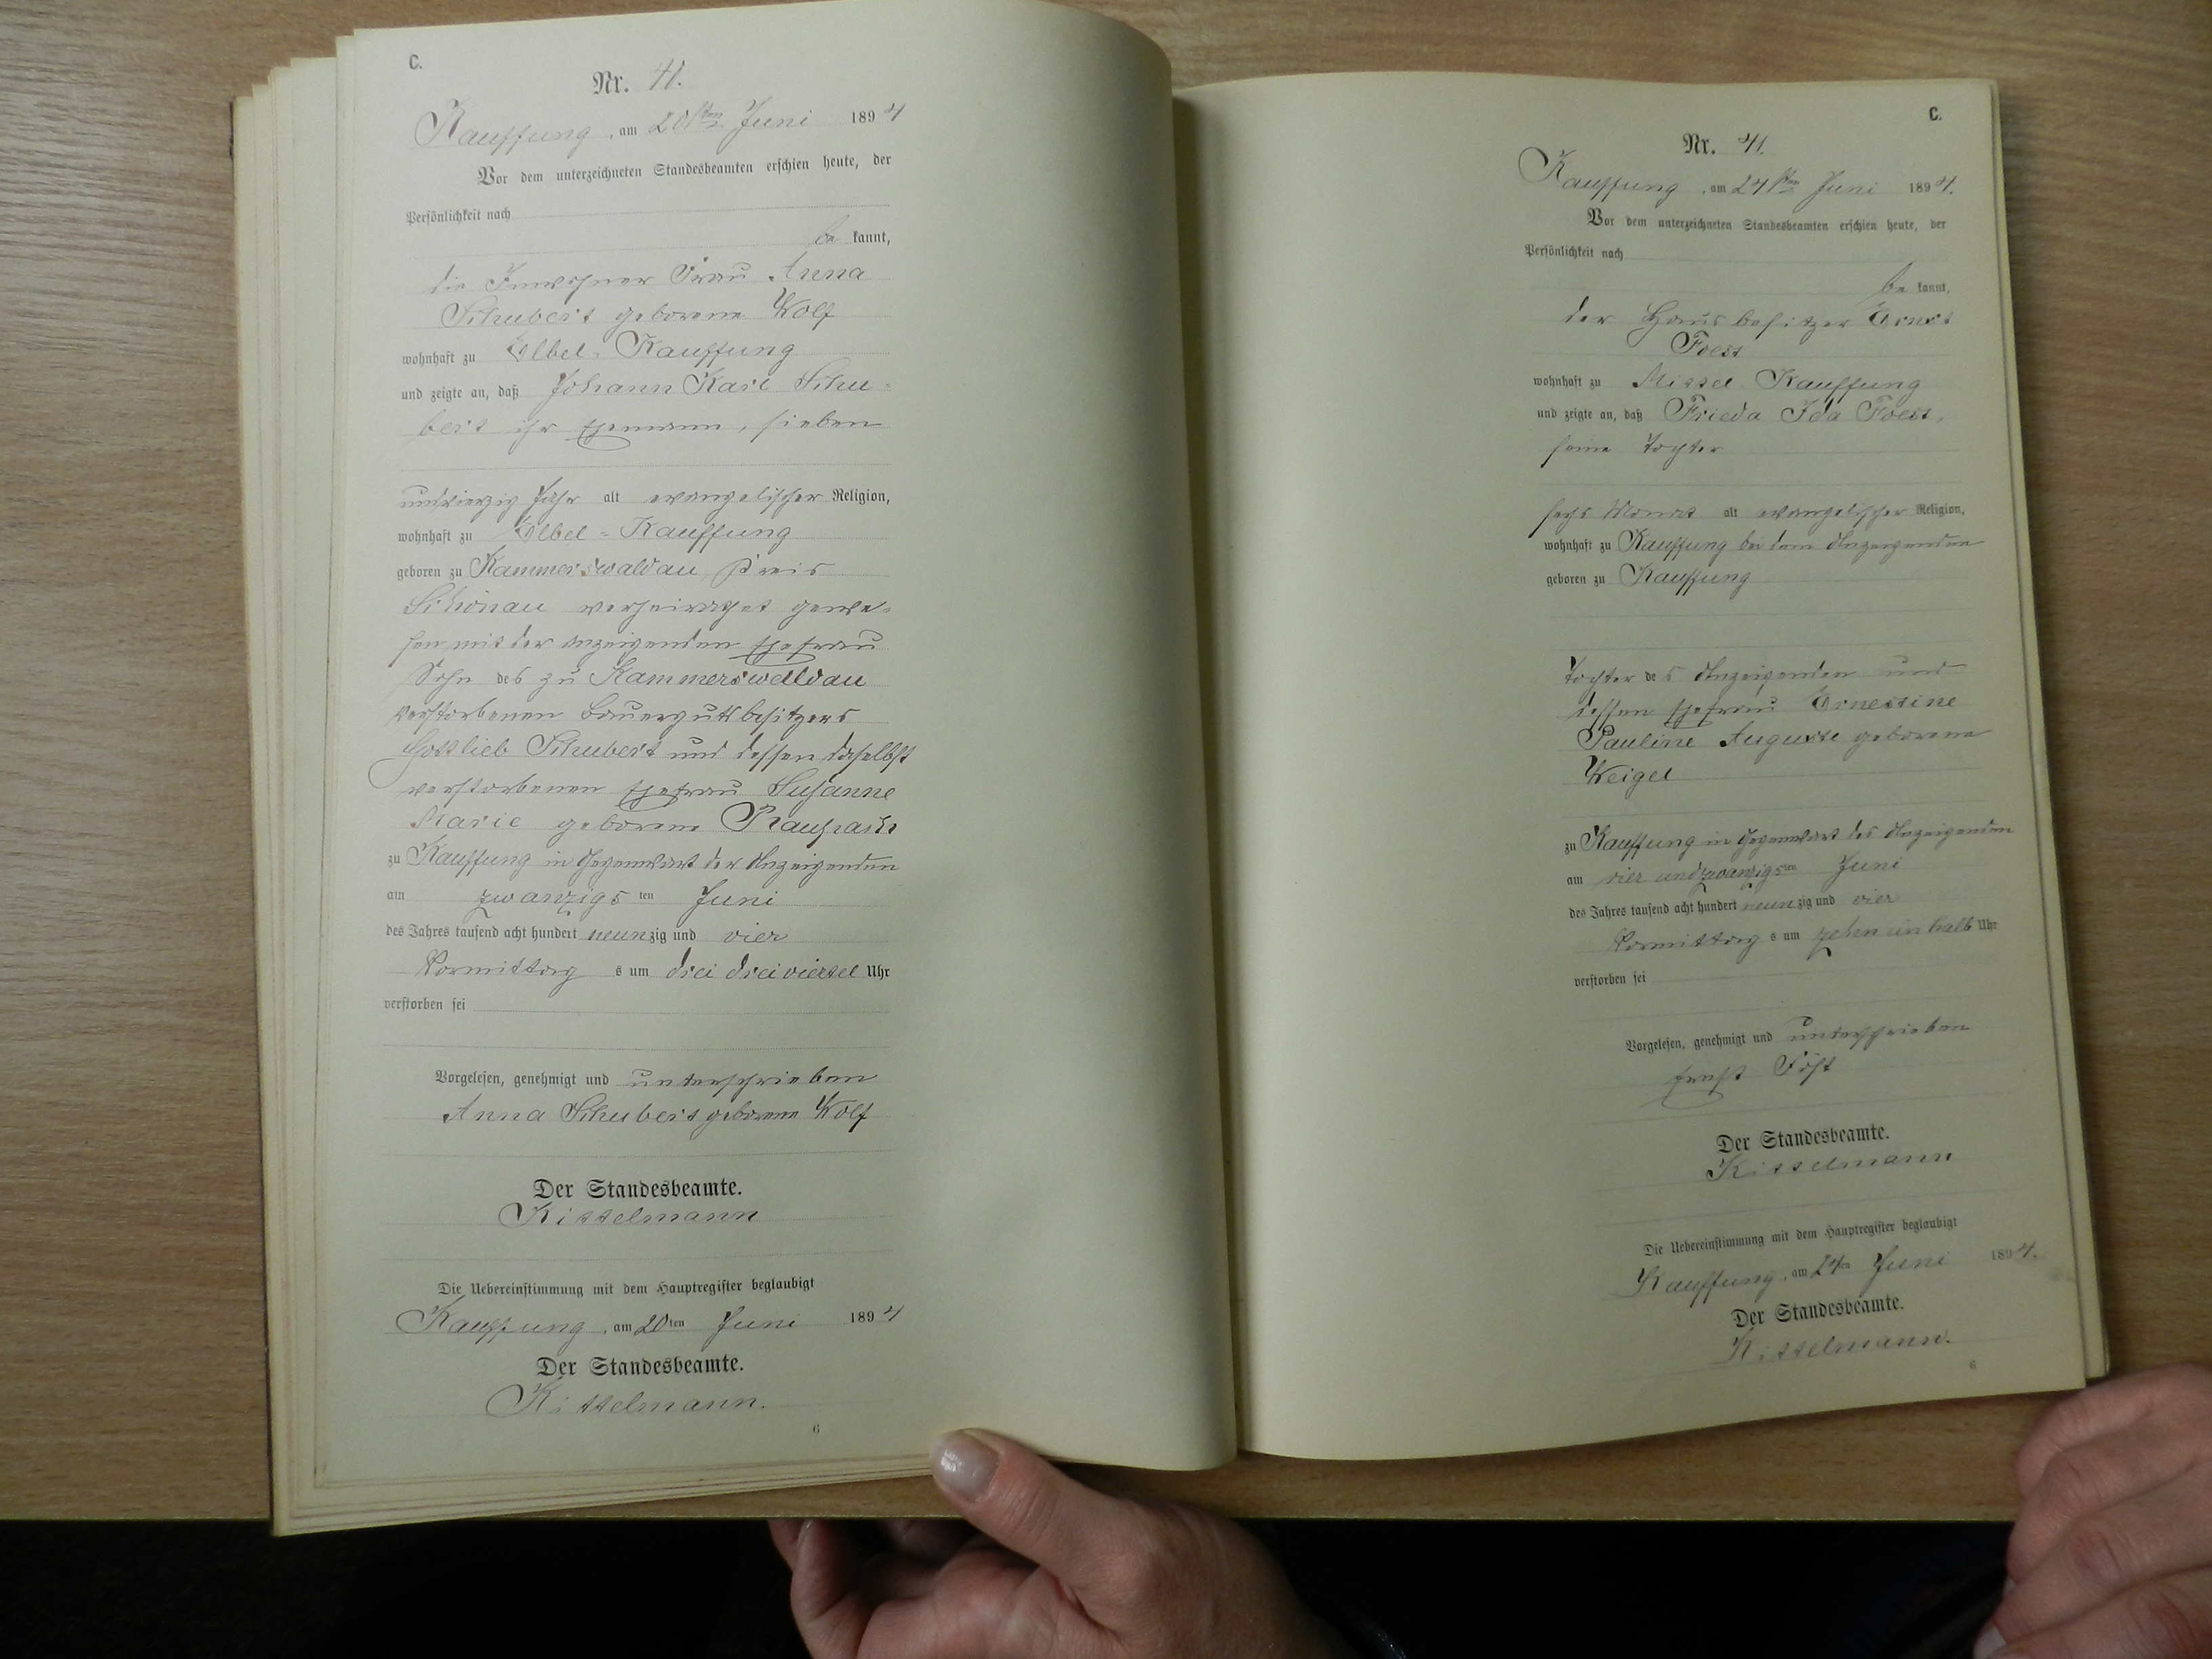 C.
Nr. 41.
Kauffung, am 20sten Juni 1894
Vor dem unterzeichneten Standesbeamten erschien heute, der
Persönlichkeit nach
be kannt,
die Inwohner Frau Anna
Schubert geborene Wolf
wohnhaft zu Elbel-Kauffung
und zeigte an, daß Johann Karl Schu-
bert ihr Ehemann, sieben
undvierzig Jahr alt evangelischer Religion,
wohnhaft zu Elbel-Kauffung
geboren zu Kammerswaldau, Kreis
Schönau verheirathet gewe-
sen mit der Anzeigenden Ehefrau
Sohn des zu Kammerswaldau
verstorbenen Bauergutsbesitzers
Gottlieb Schubert und dessen daselbst
verstorbenen Ehefrau Susanne
Marie geborene
zu Kauffung in Gegenwart der Anzeigenden
am zwanzigs ten Juni
des Jahres tausend acht hundert neunzig und vier
Vormittag s um drei dreiviertel Uhr
verstorben sei
Vorgelesen, genehmigt und unterschrieben
Anna Schubert geborene Wolf
Der Standesbeamte.
Kittelmann
Die Uebereinstimmung mit dem Hauptregister beglaubigt
Kauffung, am 20ten Juni 1894
Der Standesbeamte.
Kittelmann.
6
C.
Nr. 41.
Kauffung, am 24sten Juni 1894.
Vor dem unterzeichneten Standesbeamten erschien heute, der
Persönlichkeit nach
be kannt,
der Hausbesitzer Ernst
Foest
wohnhaft zu Mittel Kauffung
und zeigte an, daß Frieda Ida Foest,
seine Tochter
sechs Monat alt evangelischer Religion,
wohnhaft zu Kauffung bei dem Anzeigenden
geboren zu Kauffung
Tochter des Anzeigenden und
dessen Ehefrau Ernestine
Pauline Auguste geborene
Weigel
zu Kauffung in Gegenwart des Anzeigenden
am vier undzwanzigsten Juni
des Jahres tausend acht hundert neunzig und vier
Vormittag s um zehn ein halb Uhr
verstorben sei
Vorgelesen, genehmigt und unterschrieben
Ernst Föst
Der Standesbeamte.
Kittelmann
Die Uebereinstimmung mit dem Hauptregister beglaubigt
Kauffung, am 24ten Juni 1894.
Der Standesbeamte.
Kittelmann.
6